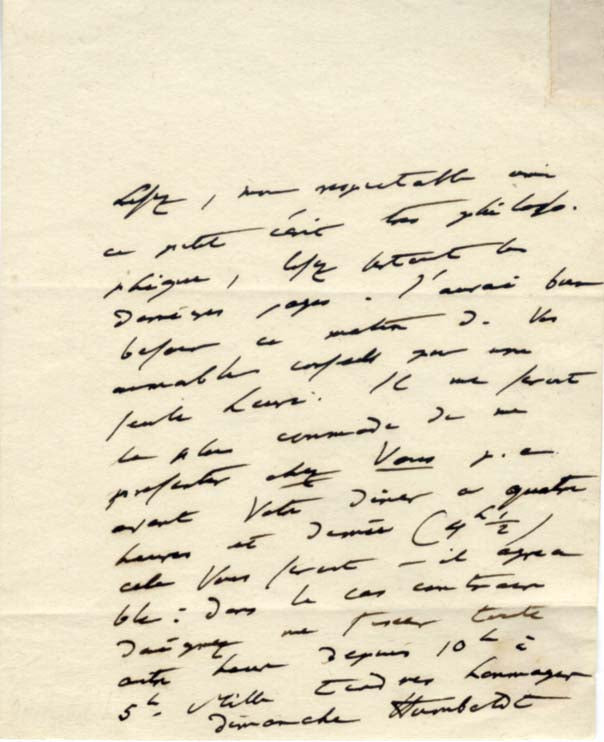 Lisez, mon respectable ami
ce petit écrit très philoso-
phique, lisez surtout les
dernières pages. J'aurais bien
besoin ce matin de Vos
aimables conseils pour une
seule heure. Il me serait
le plus commode de me
présenter chez Vous
avant Votre dîner à quatre
heures et demie (4h 1/2)
cela Vous serait-il agréa
ble: dans le cas contraire
daignez me fixer toute
autre heure depuis 10h à
5h. Mille tendres hommages
dimanche Humboldt